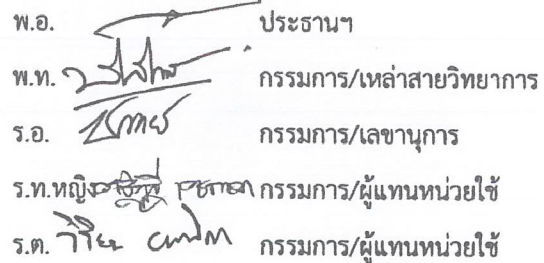 พ.อ. ประธานฯ
พ.ท. กรรมการ/เหล่าสายวิทยาการ
ร.อ. กรรมการ/เลขานุการ
ร.ท.หญิง กรรมการ/ผู้แทนหน่วยใช้
ร.ต. กรรมการ/ผู้แทนหน่วยใช้